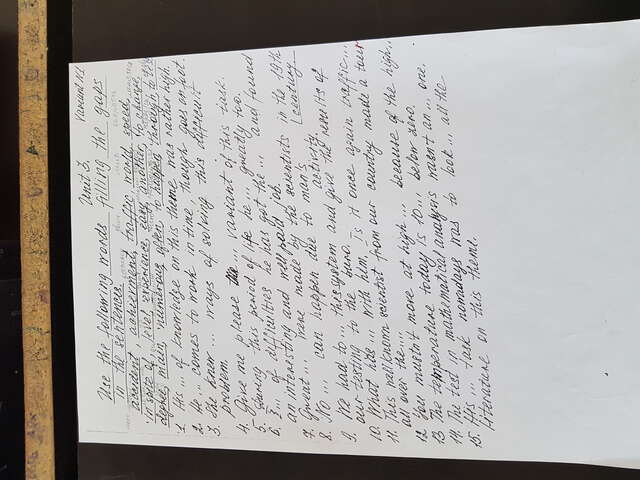 Unit 3. Variant N1
Use the following words filling the gaps
in the sentences.
accident, achierment, traffic, world, speed,
in spite of, level, experience, easy, another, to change,
degree, main, numerous, often, to happen, through, to
1. His ... of knowledge on this theme was rather high.
2. He ... comes to work in time, though goes on foot.
3. She knew ... ways of solving this difficult
problem.
4. Give me please ... variant of this task.
5. During this period of life he ... greatly too.
6. I... of difficulties he has got the ... and found
an interesting and well paid job.
7. Great ... were made by the scientists in the 19th
century
8. No ... can happen due to man's
activity.
9. We had to ... this system and give the results of
our testing to the buro.
10. What has ... with him, is it once again traffic...
11. This wellknown scientist from our country made a tour
all over the....
12. You mustn't move at high ... because of the high..
13. The temperature today is 10... below zero.
14. The test in mathematical analysis wasn't an ... one.
15. His ... task nowadays was to look ... all the
literature on this theme.